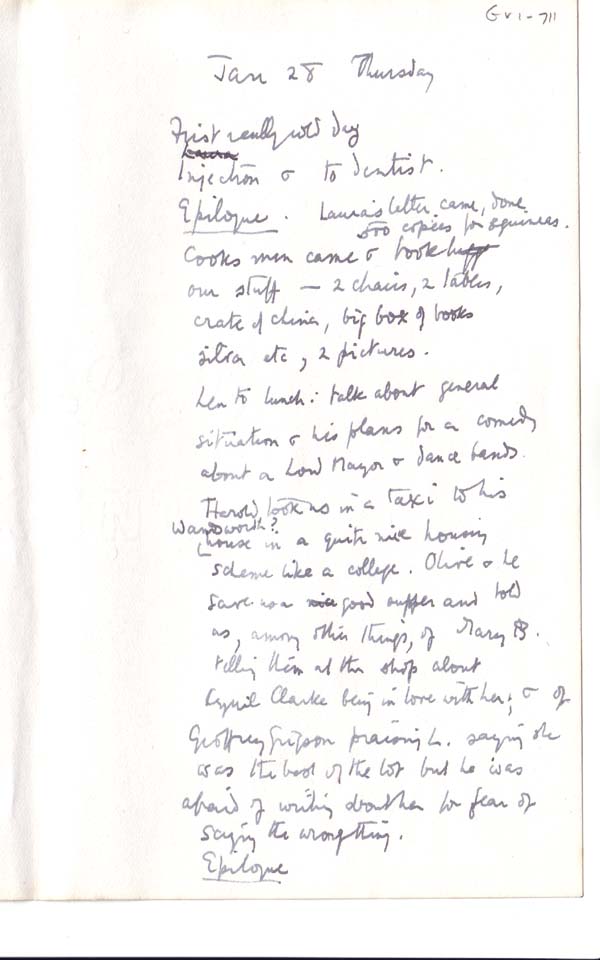 GVI-711
Jan 28 Thursday
First really cold day
Laura
Injection & to dentist.
Epilogue. Laura's letter came, done
500 copies for 8 guineas.
Cooks men came & took
our stuff — 2 chairs, 2 tables,
crate of china, big box of books
silver etc, 2 pictures.
Len to lunch: talk about general
situation & his plans for a comedy
about a Lord Mayor & dance bands.
Harold took us in a taxi to his
Wandsworth?
house in a quite nice housing
scheme like a college. Olive & he
gave us a nice good supper and told
us, among other things, of Mary B.
telling them at the shop about
Clarke being in love with her; & of
Geoffrey Grigson praising L. saying she
was the best of the lot but he was
afraid of writing about her for fear of
saying the wrong thing.
Epilogue